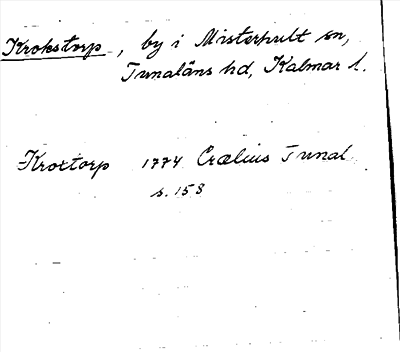 Krokstorp, by i Misterhult sn,
Tunaläns hd, Kalmar l.
Kroxtorp 1774 Crælius Tunal
s. 158